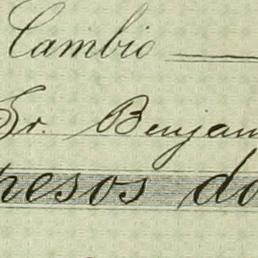 Cambio
Sr. Benjam
pesos do